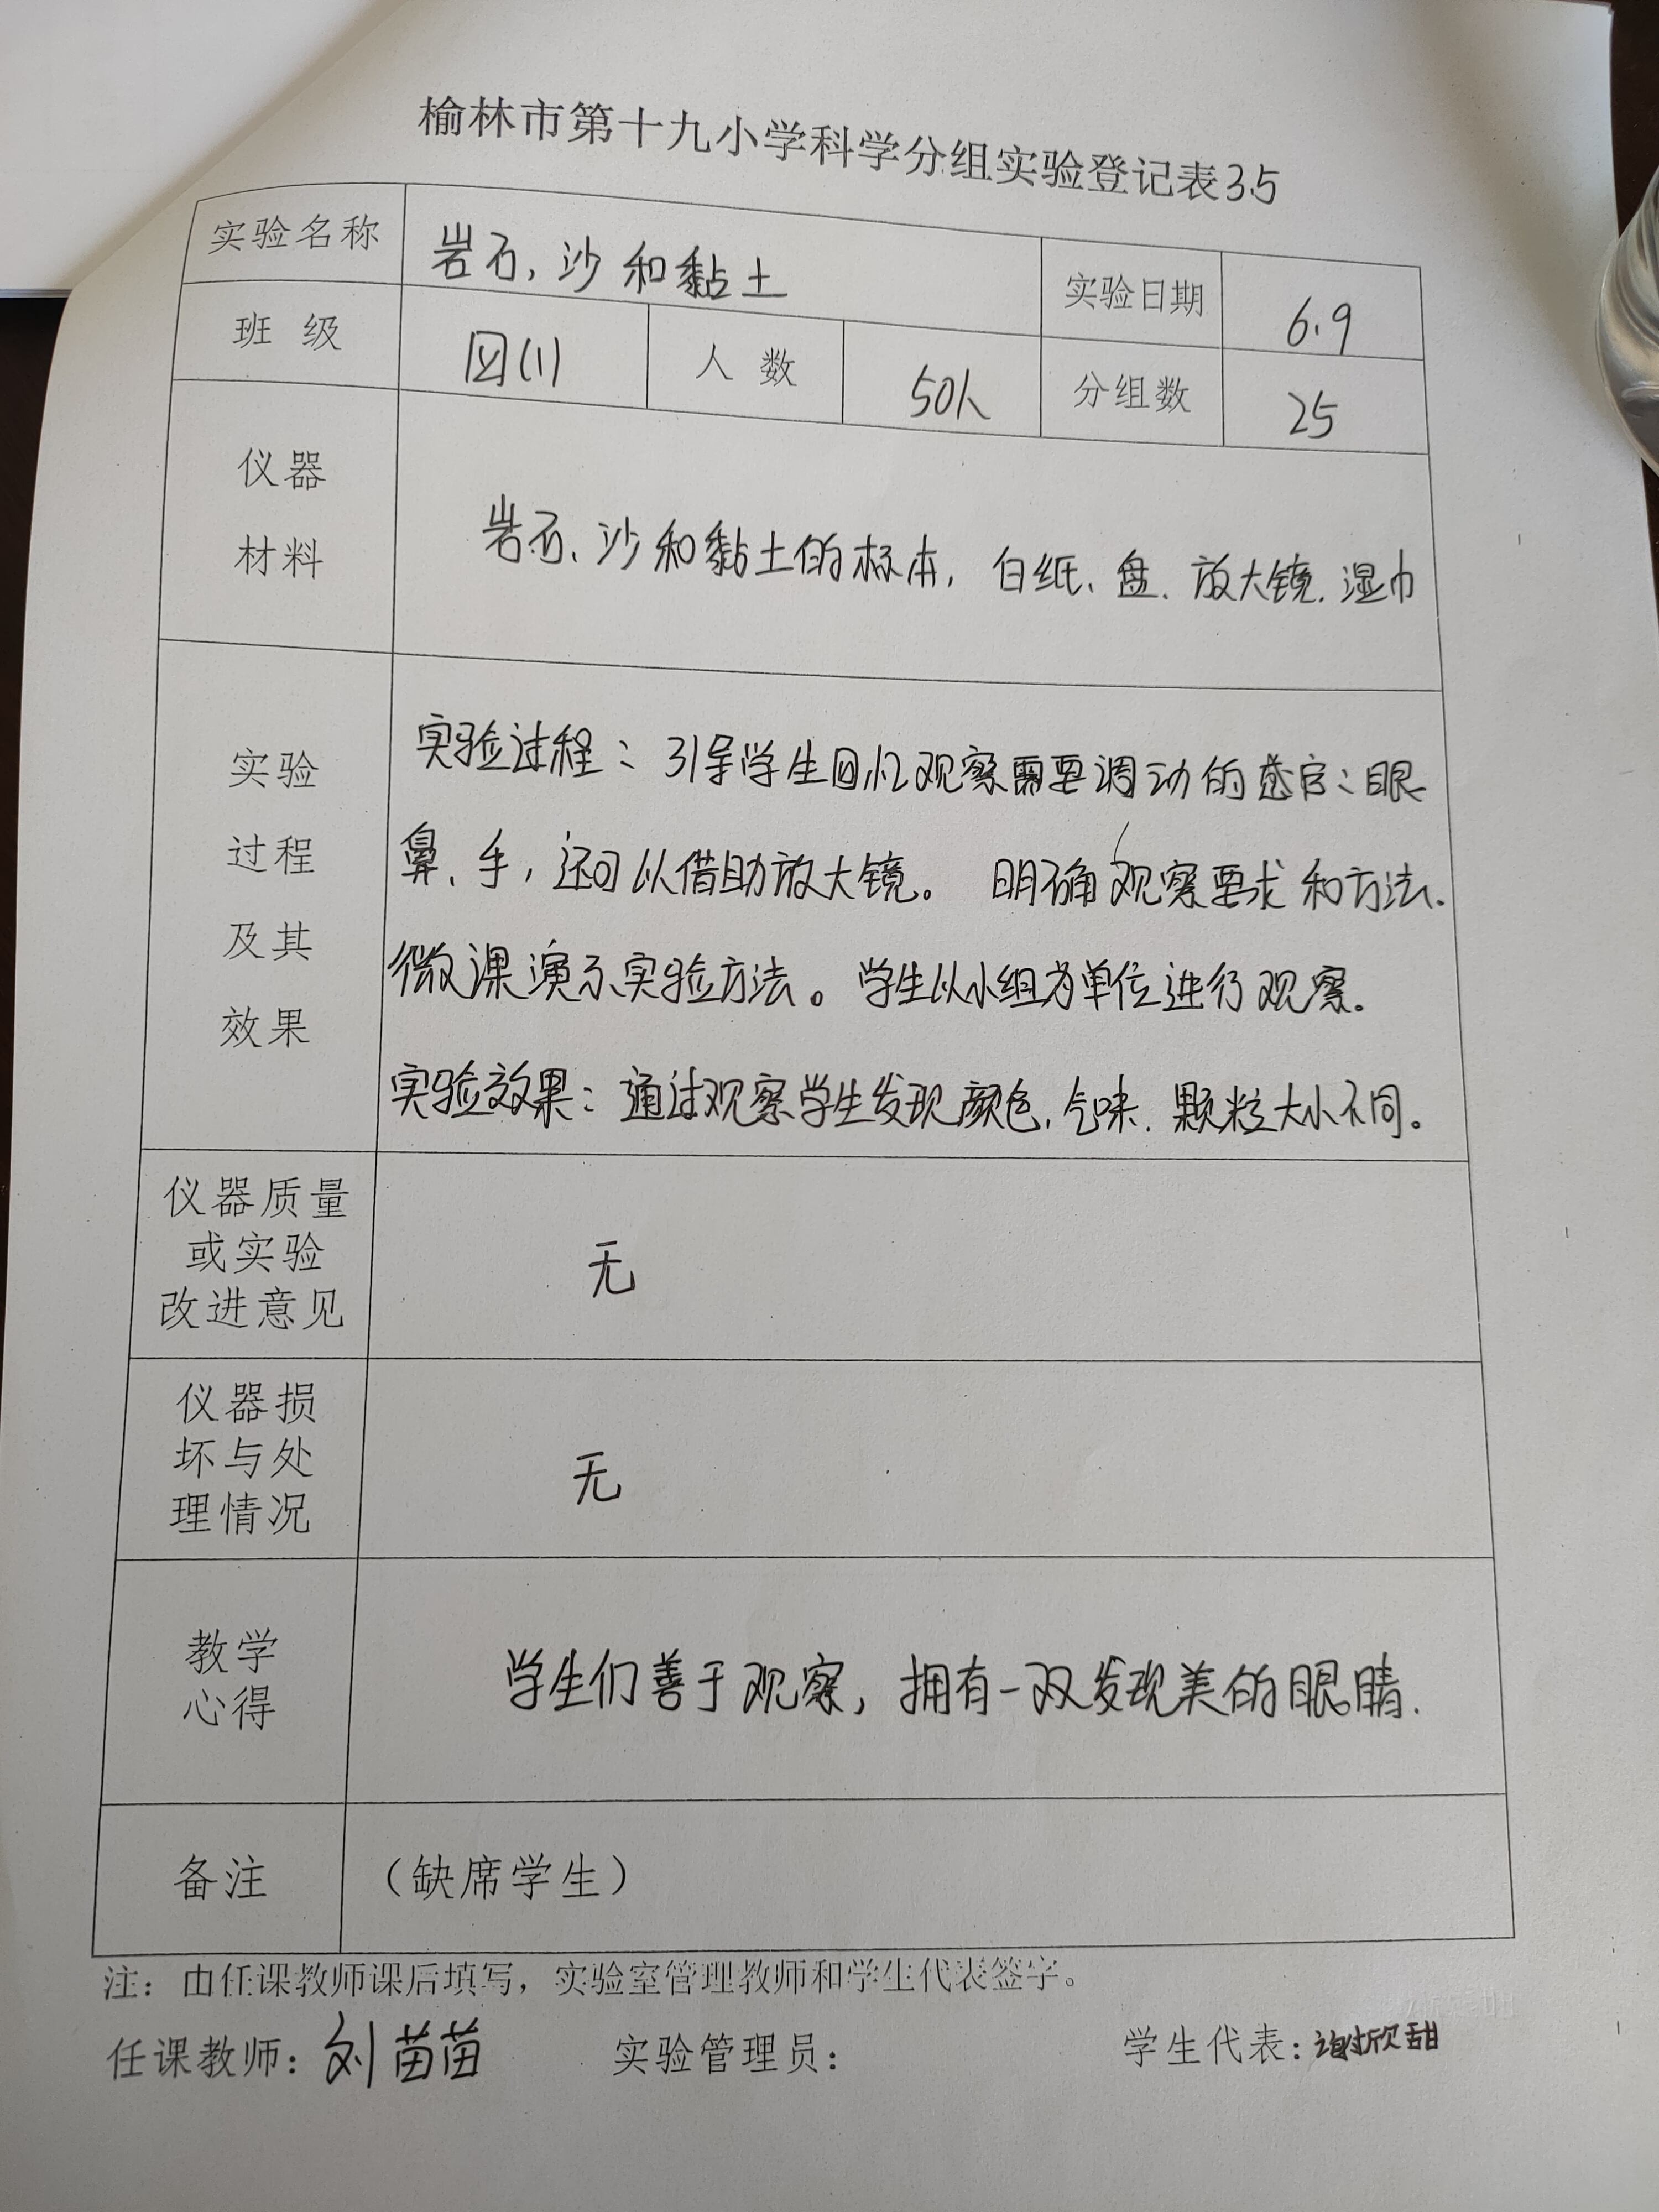 榆林市第十九小学科学分组实验登记表35
实验名称 岩石、沙和黏土 实验日期 6.9
班 级 四(1) 人 数 50人 分组数 25
仪器
材料
岩石、沙和黏土的标本, 白纸、盘、放大镜、湿巾
实验
过程
及其
效果
实验过程:引导学生回忆观察需要调动的感官:眼
鼻、手,还可以借助放大镜。 明确观察要求和方法.
微课演示实验方法。学生以小组为单位进行观察.
实验效果:通过观察学生发现颜色、气味、颗粒大小不同。
仪器质量
或实验
改进意见
无
仪器损
坏与处
理情况
无
教学
心得
学生们善于观察,拥有一双发现美的眼睛.
备注 (缺席学生)
注:由任课教师课后填写,实验室管理教师和学生代表签字。
任课教师:刘苗苗 实验管理员: 学生代表:谢欣甜